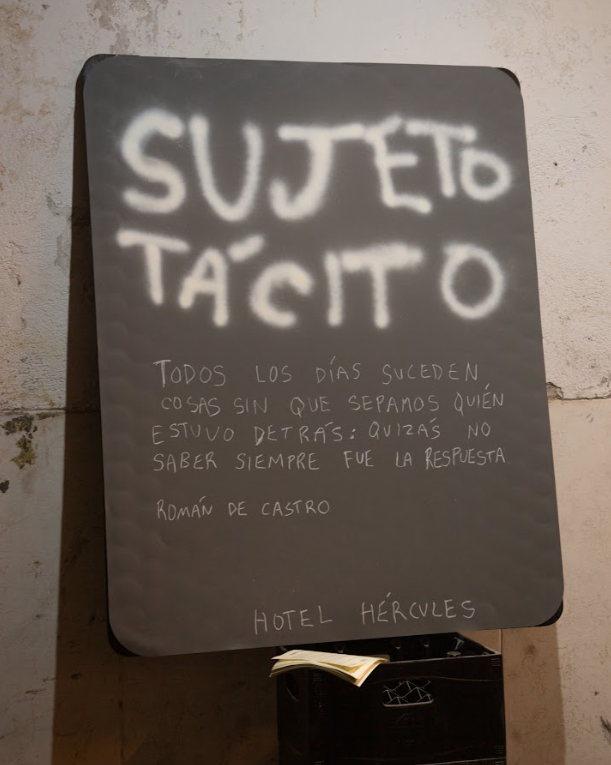 SUJETO
TÁCITO
TODOS LOS DÍAS SUCEDEN
COSAS SIN QUE SEPAMOS QUIÉN
ESTUVO DETRÁS: QUIZÁS NO
SABER SIEMPRE FUE LA RESPUESTA
ROMÁN DE CASTRO
HOTEL HÉRCULES